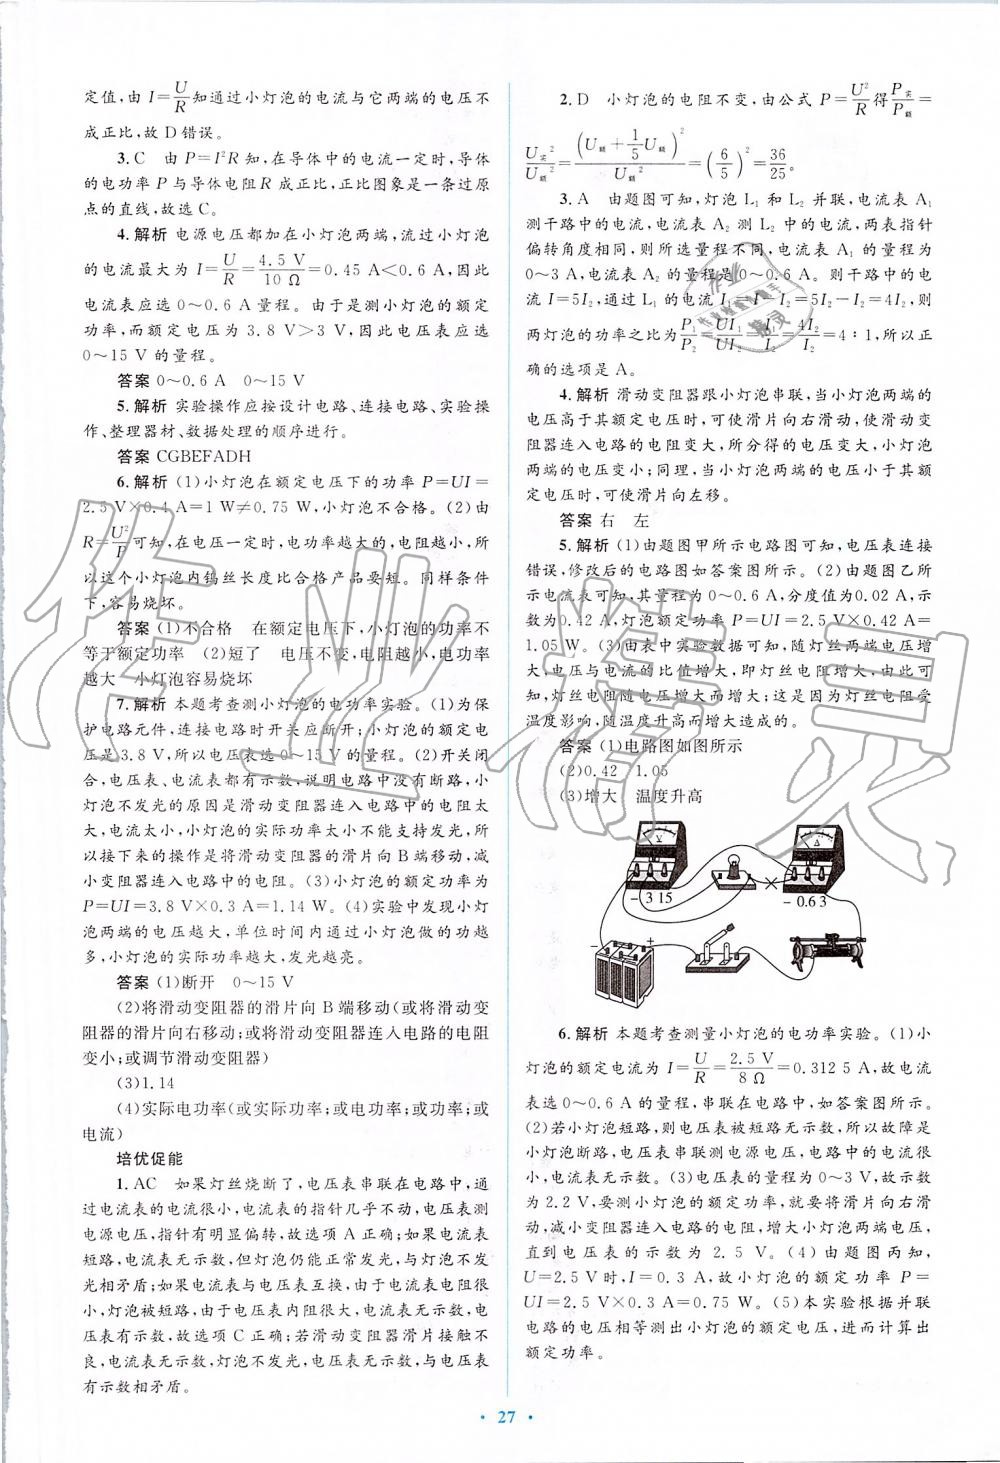 定值,由 I=U/R 知通过小灯泡的电流与它两端的电压不
成正比,故 D 错误。
3. C 由 P=I²R 知,在导体中的电流一定时,导体
的电功率 P 与导体电阻 R 成正比,正比图象是一条过原
点的直线,故选 C。
4. 解析 电源电压都加在小灯泡两端,流过小灯泡
的电流最大为 I=U/R=4.5 V/10 Ω=0.45 A<0.6 A,因此
电流表应选 0～0.6 A 量程。由于是测小灯泡的额定
功率,而额定电压为 3.8 V>3 V,因此电压表应选
0～15 V 的量程。
答案 0～0.6 A 0～15 V
5. 解析 实验操作应按设计电路、连接电路、实验操
作、整理器材、数据处理的顺序进行。
答案 CGBEFADH
6. 解析 (1)小灯泡在额定电压下的功率 P=UI=
2.5 V×0.4 A=1 W≠0.75 W,小灯泡不合格。(2)由
R=U²/P 可知,在电压一定时,功率越大的,电阻越小,所
以这个小灯泡内钨丝长度比合格产品要短。同样条件
下,容易烧坏。
答案 (1)不合格 在额定电压下,小灯泡的功率不
等于额定功率 (2)短了 电压不变,电阻越小,电功率
越大 小灯泡容易烧坏
7. 解析 本题考查测小灯泡的电功率实验。(1)为保
护电路元件,连接电路时开关应断开;小灯泡的额定电
压是 3.8 V,所以电压表选 0～15 V 的量程。(2)开关闭
合,电压表、电流表都有示数,说明电路中没有断路,小
灯泡不发光的原因是滑动变阻器连入电路中的电阻太
大,电流太小,小灯泡的实际功率太小不能支持发光,所
以接下来的操作是将滑动变阻器的滑片向 B 端移动,减
小变阻器连入电路中的电阻。(3)小灯泡的额定功率为
P=UI=3.8 V×0.3 A=1.14 W。(4)实验中发现小灯
泡两端的电压越大,单位时间内通过小灯泡做的功越
多,小灯泡的实际功率越大,发光越亮。
答案 (1)断开 0～15 V
(2)将滑动变阻器的滑片向 B 端移动(或将滑动变
阻器的滑片向右移动;或将滑动变阻器连入电路的电阻
变小;或调节滑动变阻器)
(3)1.14
(4)实际电功率(或实际功率;或电功率;或功率;或
电流)
培优促能
1. AC 如果灯丝烧断了,电压表串联在电路中,通
过电流表的电流很小,电流表的指针几乎不动,电压表测
电源电压,指针有明显偏转,故选项 A 正确;如果电流表
短路,电流表无示数,但灯泡仍能正常发光,与灯泡不发
光相矛盾;如果电流表与电压表互换,由于电流表电阻很
小,灯泡被短路,由于电压表内阻很大,电流表无示数,电
压表有示数,故选项 C 正确;若滑动变阻器滑片接触不
良,电流表无示数,灯泡不发光,电压表无示数,与电压表
有示数相矛盾。
2. D 小灯泡的电阻不变,由公式 P=U²/R 得 P实/P额=
U实²/U额²=(U额+1/5U额)²/U额²=(6/5)²=36/25。
3. A 由题图可知,灯泡 L₁ 和 L₂ 并联,电流表 A₁
测干路中的电流,电流表 A₂ 测 L₂ 中的电流,两表指针
偏转角度相同,则所选量程不同,电流表 A₁ 的量程为
0～3 A,电流表 A₂ 的量程是 0～0.6 A。则干路中的电
流 I=5I₂,通过 L₁ 的电流 I₁=I-I₂=5I₂-I₂=4I₂,则
两灯泡的功率之比为 P₁/P₂=UI₁/UI₂=I₁/I₂=4I₂/I₂=4∶1,所以正
确的选项是 A。
4. 解析 滑动变阻器跟小灯泡串联,当小灯泡两端的
电压高于其额定电压时,可使滑片向右滑动,使滑动变
阻器连入电路的电阻变大,所分得的电压变大,小灯泡
两端电压变小;同理,当小灯泡两端的电压小于其额
定电压时,可使滑片向左移。
答案 右 左
5. 解析 (1)由题图甲所示电路图可知,电压表连接
错误,修改后的电路图如答案图所示。(2)由题图乙所
示电流表可知,其量程为 0～0.6 A,分度值为 0.02 A,示
数为 0.42 A,灯泡额定功率 P=UI=2.5 V×0.42 A=
1.05 W。(3)由表中实验数据可知,随灯丝两端电压增
大,电压与电流的比值增大,即灯丝电阻增大,由此可
知,灯丝电阻随电压增大而增大;这是因为灯丝电阻受
温度影响,随温度升高而增大造成的。
答案 (1)电路图如图所示
(2)0.42 1.05
(3)增大 温度升高
V A
- 3 15 - 0.6 3
- +
6. 解析 本题考查测量小灯泡的电功率实验。(1)小
灯泡的额定电流为 I=U/R=2.5 V/8 Ω=0.312 5 A,故电流
表选 0～0.6 A 的量程,串联在电路中,如答案图所示。
(2)若小灯泡短路,则电压表被短路无示数,所以故障是
小灯泡断路,电压表串联测电源电压,电路中的电流很
小,电流表无示数。(3)电压表的量程为 0～3 V,故示数
为 2.2 V,要测小灯泡的额定功率,就要将滑片向右滑
动,减小变阻器连入电路的电阻,增大小灯泡两端电压,
直到电压表的示数为 2.5 V。(4)由题图丙知,
U=2.5 V时,I=0.3 A,故小灯泡的额定功率 P=
UI=2.5 V×0.3 A=0.75 W。(5)本实验根据并联
电路的电压相等测出小灯泡的额定电压,进而计算出
额定功率。
· 27 ·
作业精灵